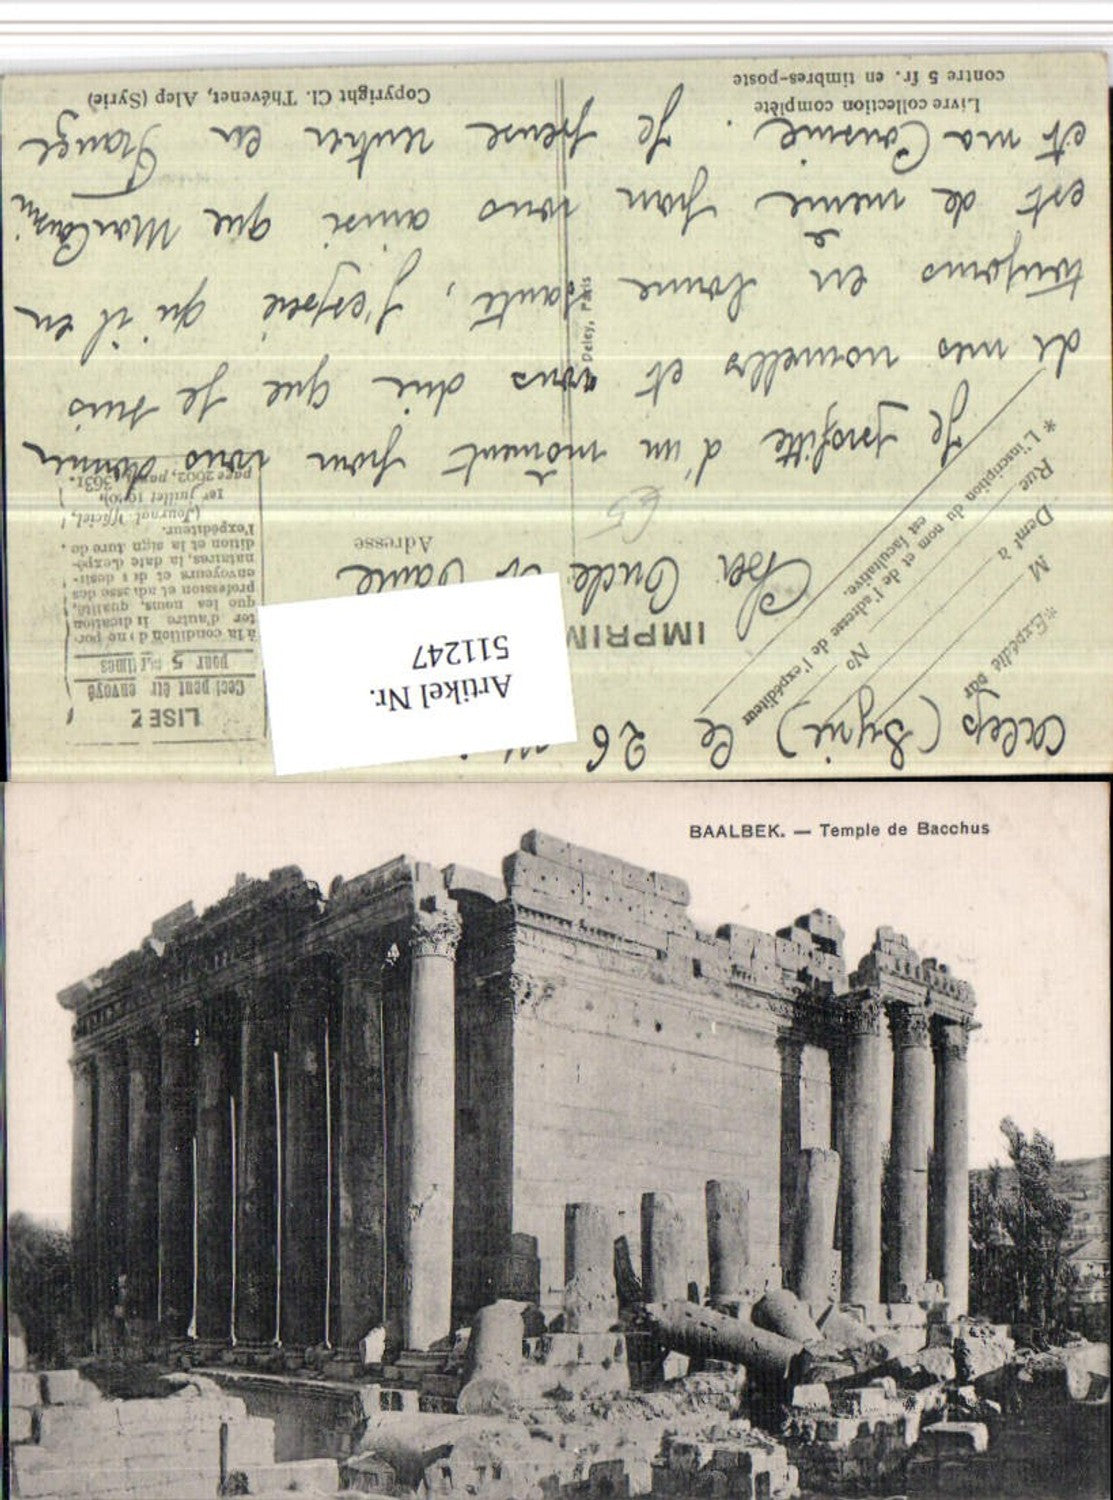 Alep (Syrie) le 26
Artikel Nr.
511247
IMPRIM
LISEZ
Ceci peut être envoyé
pour 5 centimes
à la condition de ne por-
ter d'autre indication
que les noms, qualité,
profession et adresse des
envoyeurs et des desti-
nataires, la date d'expé-
dition et la signature de
l'expéditeur.
(Journal Officiel,
1er juillet 1910,
page 2602, parag. 363).
*Expédié par
M
Demt à
Rue
No
* L'inscription du nom et de l'adresse de l'expéditeur
est facultative.
Adresse
Cher Oncle et Tante
Je profite d'un moment pour vous donner
de mes nouvelles et vous dire que je suis
toujours en bonne santé, j'espère qu'il en
est de même pour vous ainsi que
et ma Cousine. Je pense rentrer en France
Deley, Paris
Livre collection complète
contre 5 fr. en timbres-poste
Copyright Cl. Thévenet, Alep (Syrie)
BAALBEK. — Temple de Bacchus